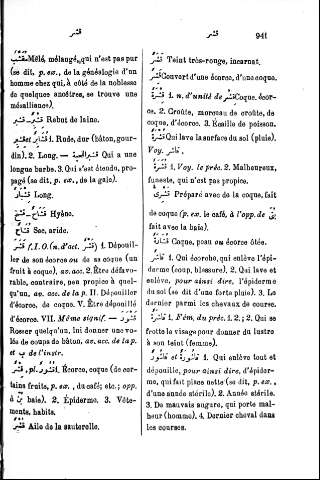 قشر
قشر
941
Mêlé, mélangé, qui n'est pas pur
(se dit, p. ex., de la généalogie d'un
homme chez qui, à côté de la noblesse
de quelques ancêtres, se trouve une
mésalliance).
Rebut de laine.
1. Rude, dur (bâton, gour-
din). 2. Long. — قشبار اللحية Qui a une
longue barbe. 3. Qui s'est étendu, pro-
pagé (se dit, p. ex., de la gale).
Long.
Hyène.
قشاح Sec, aride.
قشر f. I. O. (n. d'act. قشر) 1. Dépouil-
ler de son écorce ou de sa coque (un
fruit à coque), av. acc. 2. Être défavo-
rable, contraire, peu propice à quel-
qu'un, av. acc. de la p. II. Dépouiller
d'écorce, de coque. V. Être dépouillé
d'écorce. VII. Même signif. —
Rosser quelqu'un, lui donner une vo-
lée de coups de bâton, av. acc. de la p.
et ب de l'instr.
قشر, pl. قشور 1. Écorce, coque (de cer-
tains fruits, p. ex., du café, etc.; opp.
à بن baie). 2. Épiderme. 3. Vête-
ments, habits.
Aile de la sauterelle.
قشر Teint très-rouge, incarnat.
قشر Couvert d'une écorce, d'une coque.
قشرة 1. n. d'unité de قشر Coque, écor-
ce. 2. Croûte, morceau de croûte, de
coque, d'écorce. 3. Écaille de poisson.
قشرة Qui lave la surface du sol (pluie).
Voy. قاشر.
1. Voy. le préc. 2. Malheureux,
funeste, qui n'est pas propice.
قشرى Préparé avec de la coque, fait
de coque (p. ex. le café, à l'opp. de بنى
fait avec la baie).
قشارة Coque, peau ou écorce ôtée.
قاشر 1. Qui écorche, qui enlève l'épi-
derme (coup, blessure). 2. Qui lave et
enlève, pour ainsi dire, l'épiderme
du sol (se dit d'une forte pluie). 3. Le
dernier parmi les chevaux de course.
قاشرة 1. Fém. du préc. 1. 2; 2. Qui se
frotte le visage pour donner du lustre
à son teint (femme).
قاشور et قاشورة 1. Qui enlève tout et
dépouille, pour ainsi dire, d'épider-
me, qui fait place nette (se dit, p. ex.,
d'une année stérile). 2. Année stérile.
3. De mauvais augure, qui porte mal-
heur (homme). 4. Dernier cheval dans
les courses.